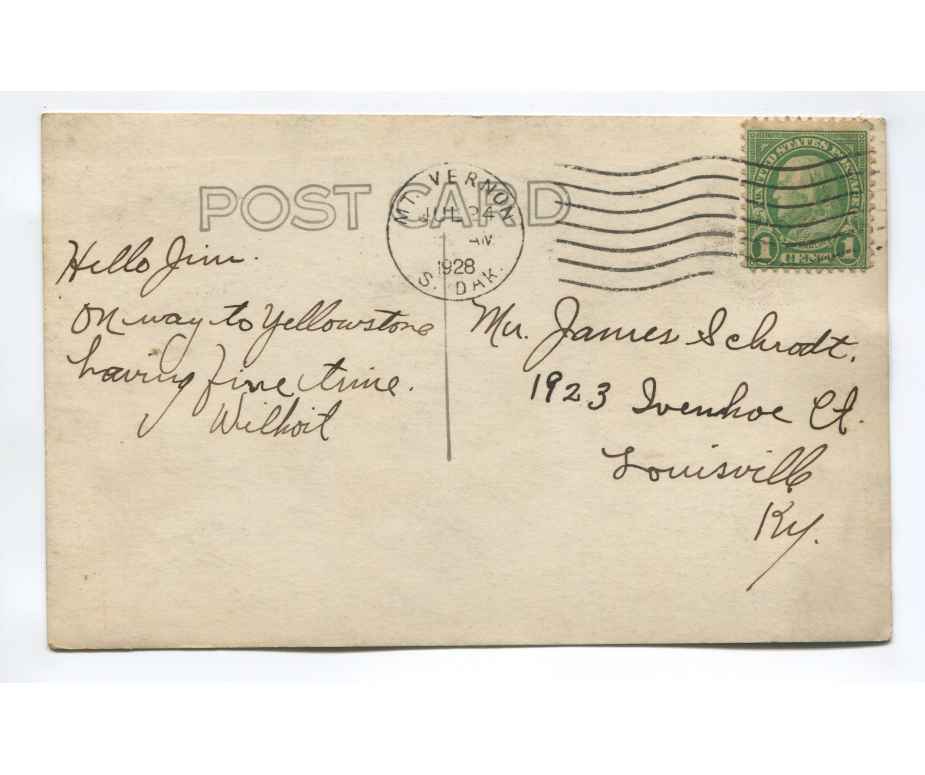 POST CARD
MT. VERNON
JUL 24
AM
1928
S. DAK.
UNITED STATES POSTAGE
1 CENT 1
Hello Jim.
On way to Yellowstone
having fine time.
Wilhoit
Mr. James Schrodt.
1923 Ivenhoe Ct.
Louisville
Ky.